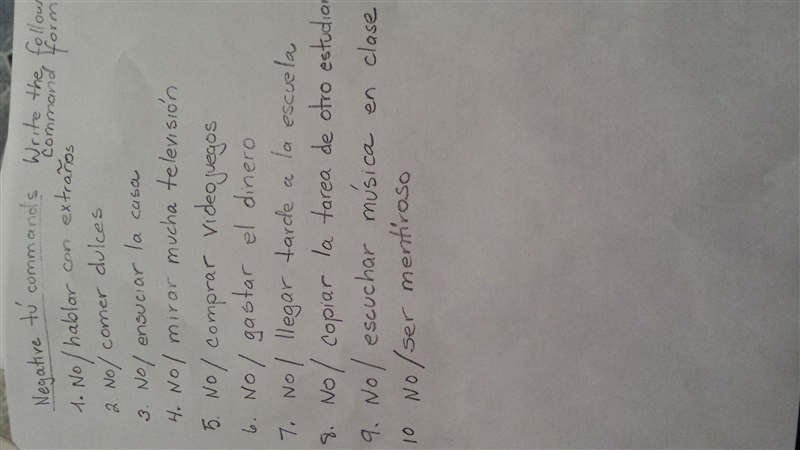 Negative tú commands Write the follow
command form
1. NO/hablar con extraños
2. NO/comer dulces
3. NO/ensuciar la casa
4. NO/mirar mucha televisión
5. NO/comprar videojuegos
6. NO/gastar el dinero
7. NO/llegar tarde a la escuela
8. NO/copiar la tarea de otro estudian
9. NO/escuchar música en clase
10. NO/ser mentiroso